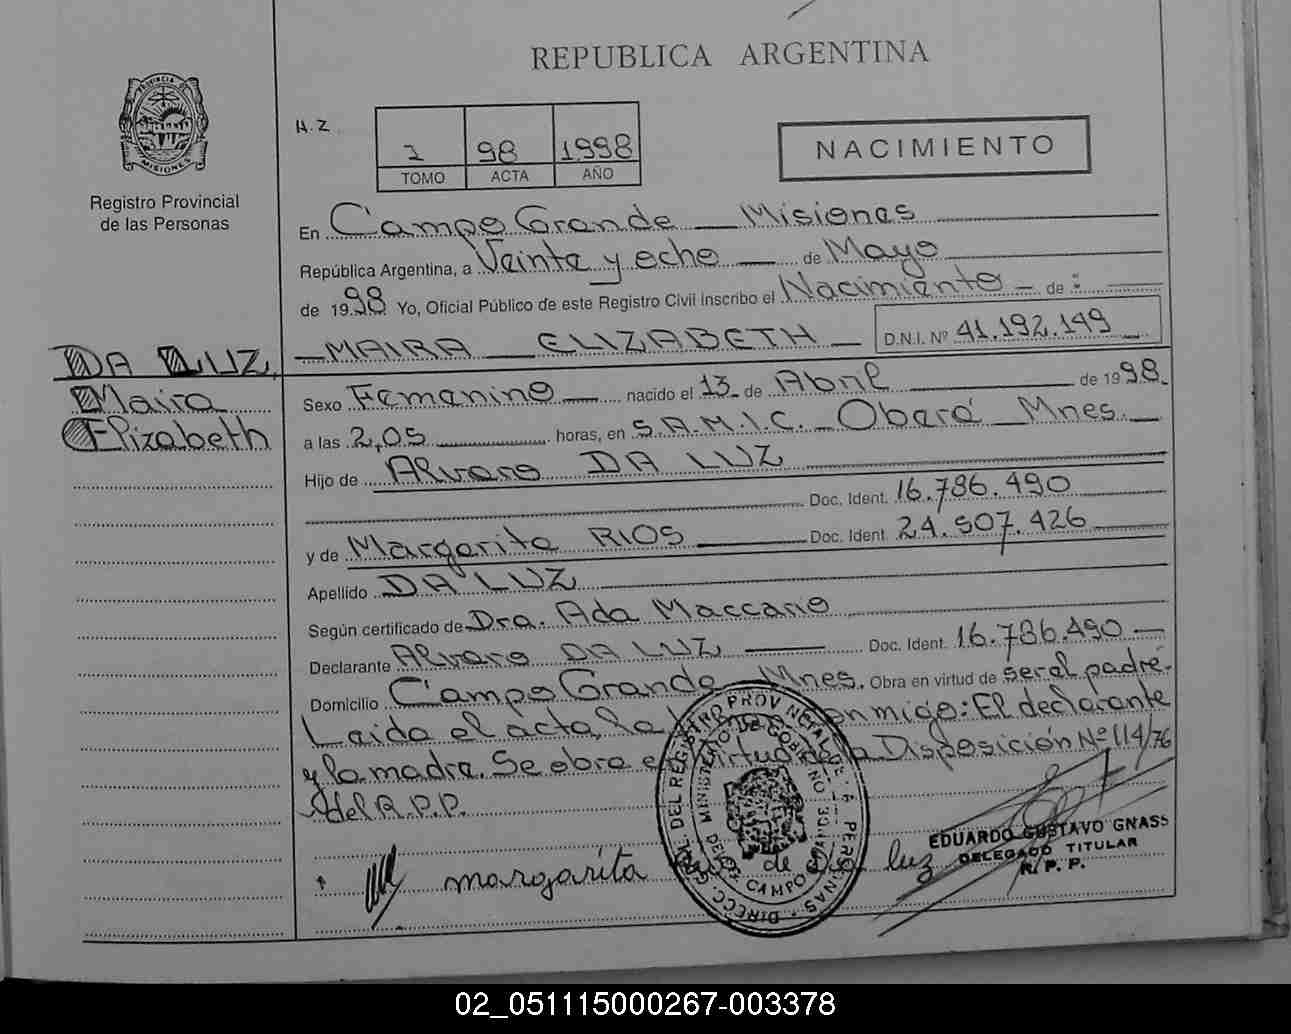 REPUBLICA ARGENTINA
PROVINCIA DE MISIONES
Registro Provincial
de las Personas
H.Z
1 98 1998
TOMO ACTA AÑO
NACIMIENTO
En Campo Grande Misiones
República Argentina, a Veinte y ocho de Mayo
de 1998 Yo, Oficial Público de este Registro Civil inscribo el Nacimiento de :
MAIRA ELIZABETH D.N.I. Nº 41.192.149
DA LUZ
Maira
Elizabeth
Sexo Femenino nacido el 13 de Abril de 1998
a las 2,05 horas, en S.A.M.I.C. Oberá Mnes.
Hijo de Alvaro DA LUZ
Doc. Ident. 16.786.490
y de Margarita RIOS Doc. Ident. 24.507.426
Apellido DA LUZ
Según certificado de Dra. Ada Maccario
Declarante Alvaro DA LUZ Doc. Ident. 16.786.490
Domicilio Campo Grande Mnes. Obra en virtud de ser el padre.
Leida el acta, la conmigo: El declarante
y la madre. Se obra en virtud de la Disposición Nº 114/76
del R.P.P.
DIRECC. GRAL. DEL REGISTRO PROVINCIAL DE LA PERSONAS
MINISTERIO DE GOBIERNO
CAMPO GRANDE
margarita de luz
EDUARDO GUSTAVO GNASS
DELEGADO TITULAR
R. P. P.
02_051115000267-003378